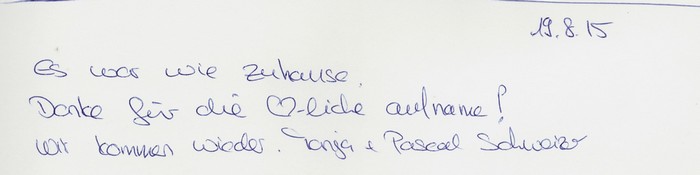 19.8.15
Es war wie zuhause.
Danke für die ♡-liche aufname!
wir kommen wieder. Tanja + Pascal Schweizer